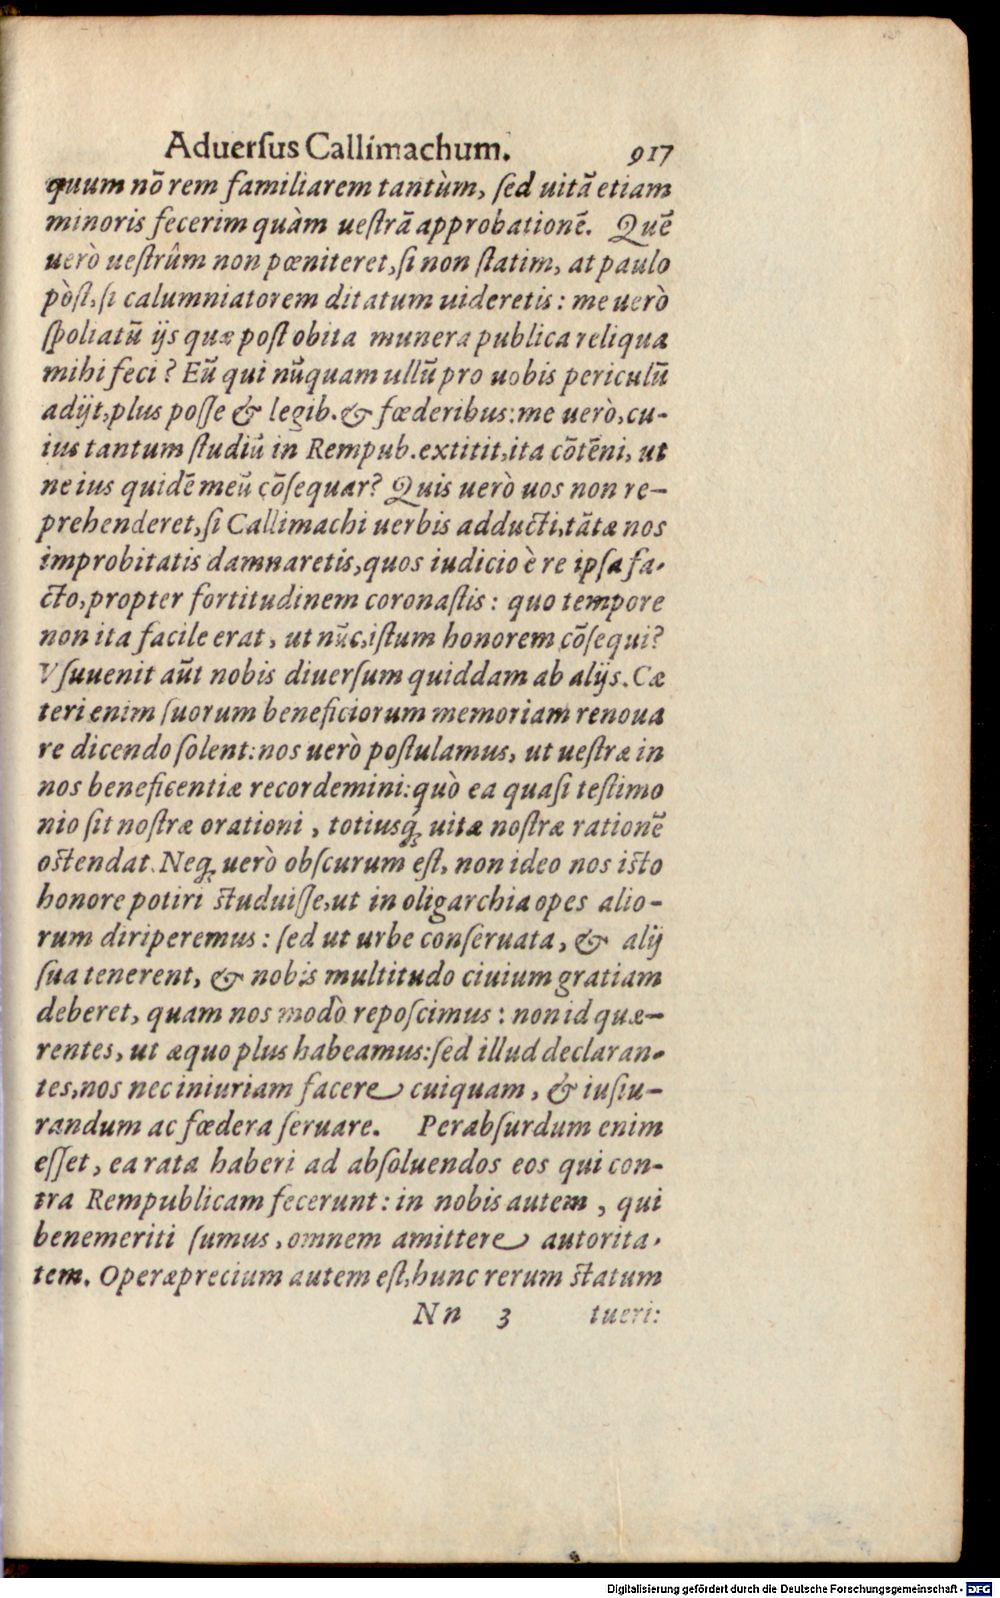 Aduerſus Callimachum. 917
quum nõ rem familiarem tantùm, ſed uitã etiam
minoris fecerim quàm ueſtrã approbationẽ. Quẽ
uerò ueſtrûm non pœniteret, ſi non ſtatim, at paulo
pòſt, ſi calumniatorem ditatum uideretis: me uerò
ſpoliatũ ijs quæ poſt obita munera publica reliqua
mihi feci? Eũ qui nũquam ullũ pro uobis periculũ
adijt, plus poſſe & legib. & fœderibus: me uerò, cu-
ius tantum ſtudiũ in Rempub. extitit, ita cõtẽni, ut
ne ius quidẽ meũ cõſequar? Quis uerò uos non re-
prehenderet, ſi Callimachi uerbis adducti, tãtæ nos
improbitatis damnaretis, quos iudicio è re ipſa fa-
cto, propter fortitudinem coronaſtis: quo tempore
non ita facile erat, ut nũc, iſtum honorem cõſequi?
Vſuuenit aũt nobis diuerſum quiddam ab alijs. Cæ
teri enim ſuorum beneficiorum memoriam renoua
re dicendo ſolent: nos uerò poſtulamus, ut ueſtræ in
nos beneficentiæ recordemini: quò ea quaſi teſtimo
nio ſit noſtræ orationi, totiusq́ꝫ uitæ noſtræ rationẽ
oſtendat. Neqꝫ uerò obſcurum eſt, non ideo nos iſto
honore potiri ſtuduiſſe, ut in oligarchia opes alio-
rum diriperemus: ſed ut urbe conſeruata, & alij
ſua tenerent, & nobis multitudo ciuium gratiam
deberet, quam nos modò repoſcimus: non id quæ-
rentes, ut æquo plus habeamus: ſed illud declaran-
tes, nos nec iniuriam facere cuiquam, & iuſiu-
randum ac fœdera ſeruare. Perabſurdum enim
eſſet, ea rata haberi ad abſoluendos eos qui con-
tra Rempublicam fecerunt: in nobis autem, qui
benemeriti ſumus, omnem amittere autorita-
tem. Operæprecium autem eſt, hunc rerum ſtatum
Nn 3 tueri:
Digitalisierung gefördert durch die Deutsche Forschungsgemeinschaft - DFG